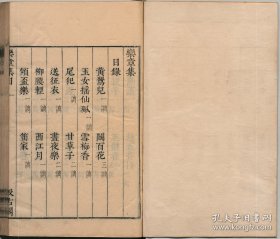 樂章集
目錄
黃鶯兒 一調 鬪百花 三調
玉女搖仙珮 一調 雪梅香 一調
尾犯 一調 甘草子 二調
送征衣 一調 晝夜樂 二調
柳腰輕 一調 西江月 一調
傾盃樂 一調 笛家 一調
樂章集目
汲古閣
孔夫子旧书网